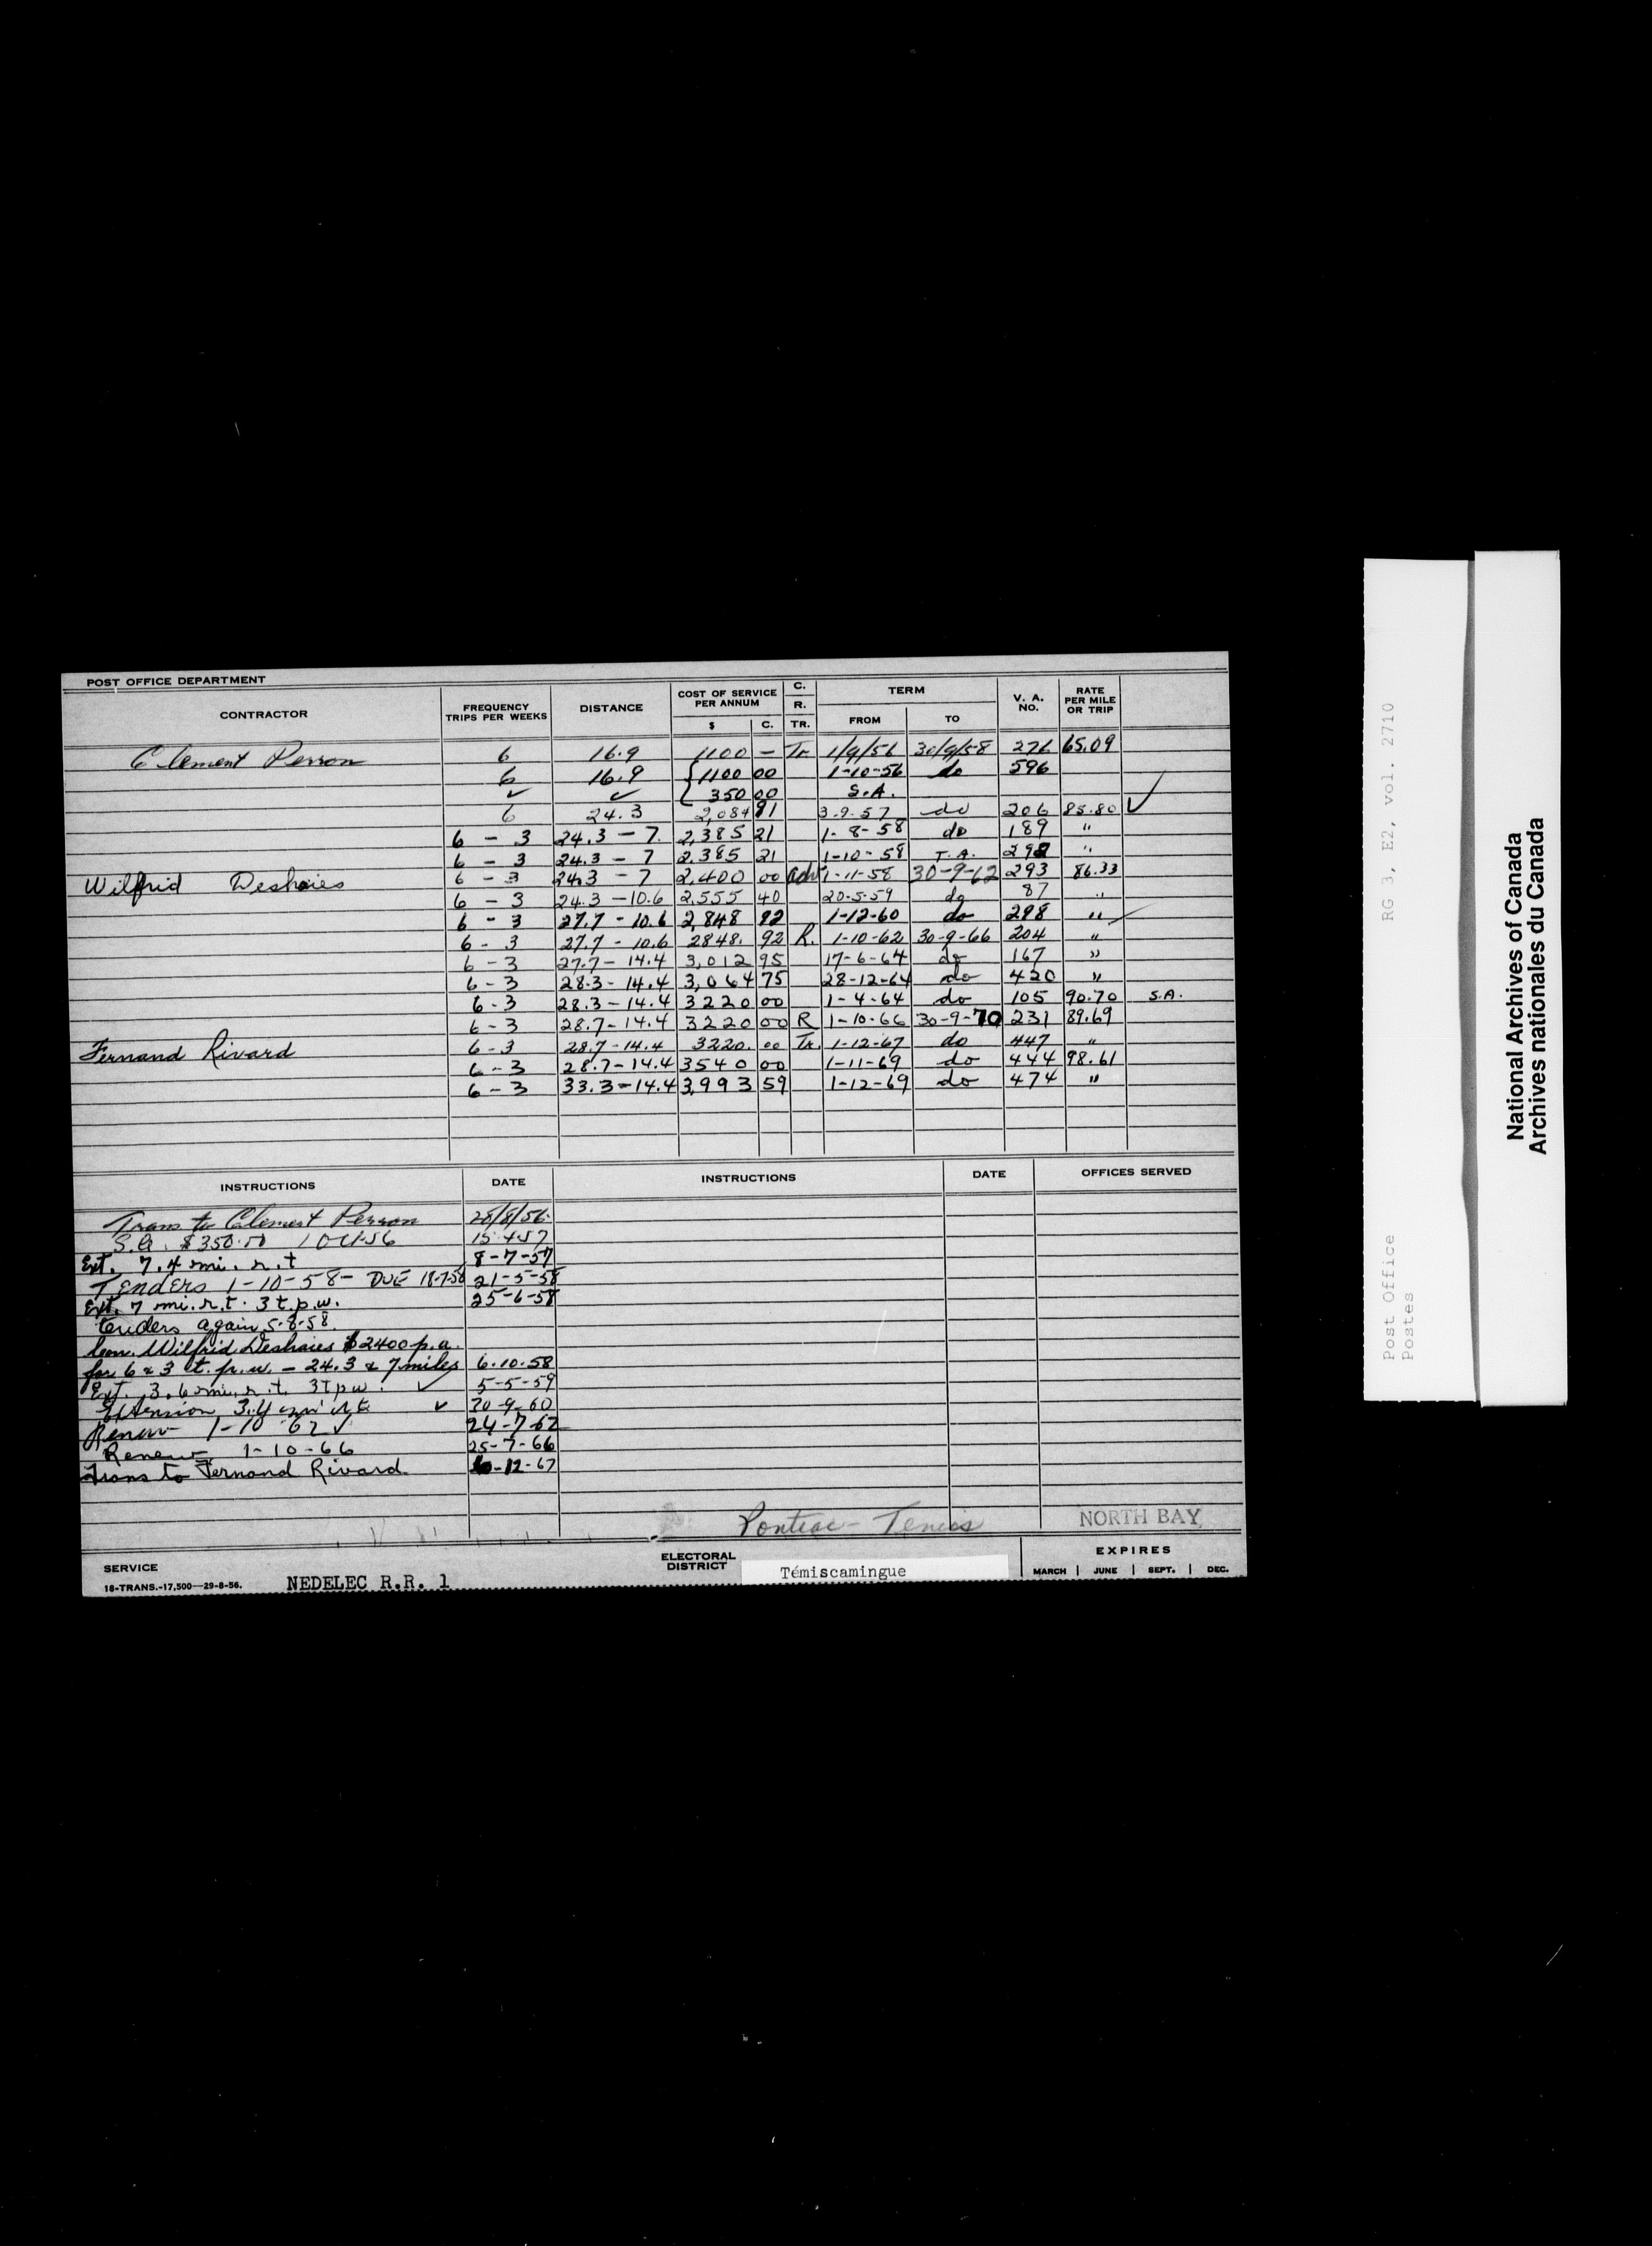 POST OFFICE DEPARTMENT
CONTRACTOR FREQUENCY TRIPS PER WEEKS DISTANCE COST OF SERVICE PER ANNUM $ C. C. R. TR. TERM FROM TO V. A. NO. RATE PER MILE OR TRIP
Clement Perron 6 16.9 1100 — Tr. 1/9/56 30/9/58 276 65.09
6 16.9 { 1100 00 1-10-56 do 596
✓ ✓ 350 00 S.A.
6 24.3 2,084 91 3-9-57 do 206 85.80 ✓
6 - 3 24.3 - 7 2,385 21 1-8-58 do 189 "
6 - 3 24.3 - 7 2,385 21 1-10-58 T.A. 292 "
Wilfrid Deshaies 6 - 3 24.3 - 7 2,400 00 adv 1-11-58 30-9-62 293 86.33
6 - 3 24.3 - 10.6 2,555 40 20-5-59 do 87 "
6 - 3 27.7 - 10.6 2,848 92 1-12-60 do 298 "
6 - 3 27.7 - 10.6 2848. 92 R. 1-10-62 30-9-66 204 "
6 - 3 27.7 - 14.4 3,012 95 17-6-64 do 167 "
6 - 3 28.3 - 14.4 3,064 75 28-12-64 do 420 "
6 - 3 28.3 - 14.4 3220 00 1-4-64 do 105 90.70 S.A.
6 - 3 28.7 - 14.4 3220 00 R 1-10-66 30-9-70 231 89.69
Fernand Rivard 6 - 3 28.7 - 14.4 3220. 00 Tr. 1-12-67 do 447 "
6 - 3 28.7 - 14.4 3540 00 1-11-69 do 444 98.61
6 - 3 33.3 - 14.4 3,993 59 1-12-69 do 474 "
INSTRUCTIONS DATE INSTRUCTIONS DATE OFFICES SERVED
Trans to Clement Perron 28/8/56.
S.A. $350.00 1 Oct 56 15-4-57
Ext. 7.4 mi. r.t 8-7-57
TENDERS 1-10-58 - DUE 18-7-58 21-5-58
Ext. 7 mi. r.t. 3 t.p.w. 25-6-58
tenders again 5-8-58.
Con. Wilfrid Deshaies $2400 p.a.
for 6 & 3 t. p. w. - 24.3 & 7 miles 6-10-58
Ext. 3.6 mi. r.t. 3 t p w. ✓ 5-5-59
Extension 3.4 mi r t ✓ 20-9-60
Renew 1-10-62 ✓ 24-7-62
Renew 1-10-66 25-7-66
Trans to Fernand Rivard -12-67
Pontiac - Temis NORTH BAY
SERVICE NEDELEC R.R. 1 ELECTORAL DISTRICT Témiscamingue EXPIRES
18-TRANS.-17,500—29-8-56. MARCH | JUNE | SEPT. | DEC.
RG 3, E2, vol. 2710
Post Office
Postes
National Archives of Canada
Archives nationales du Canada